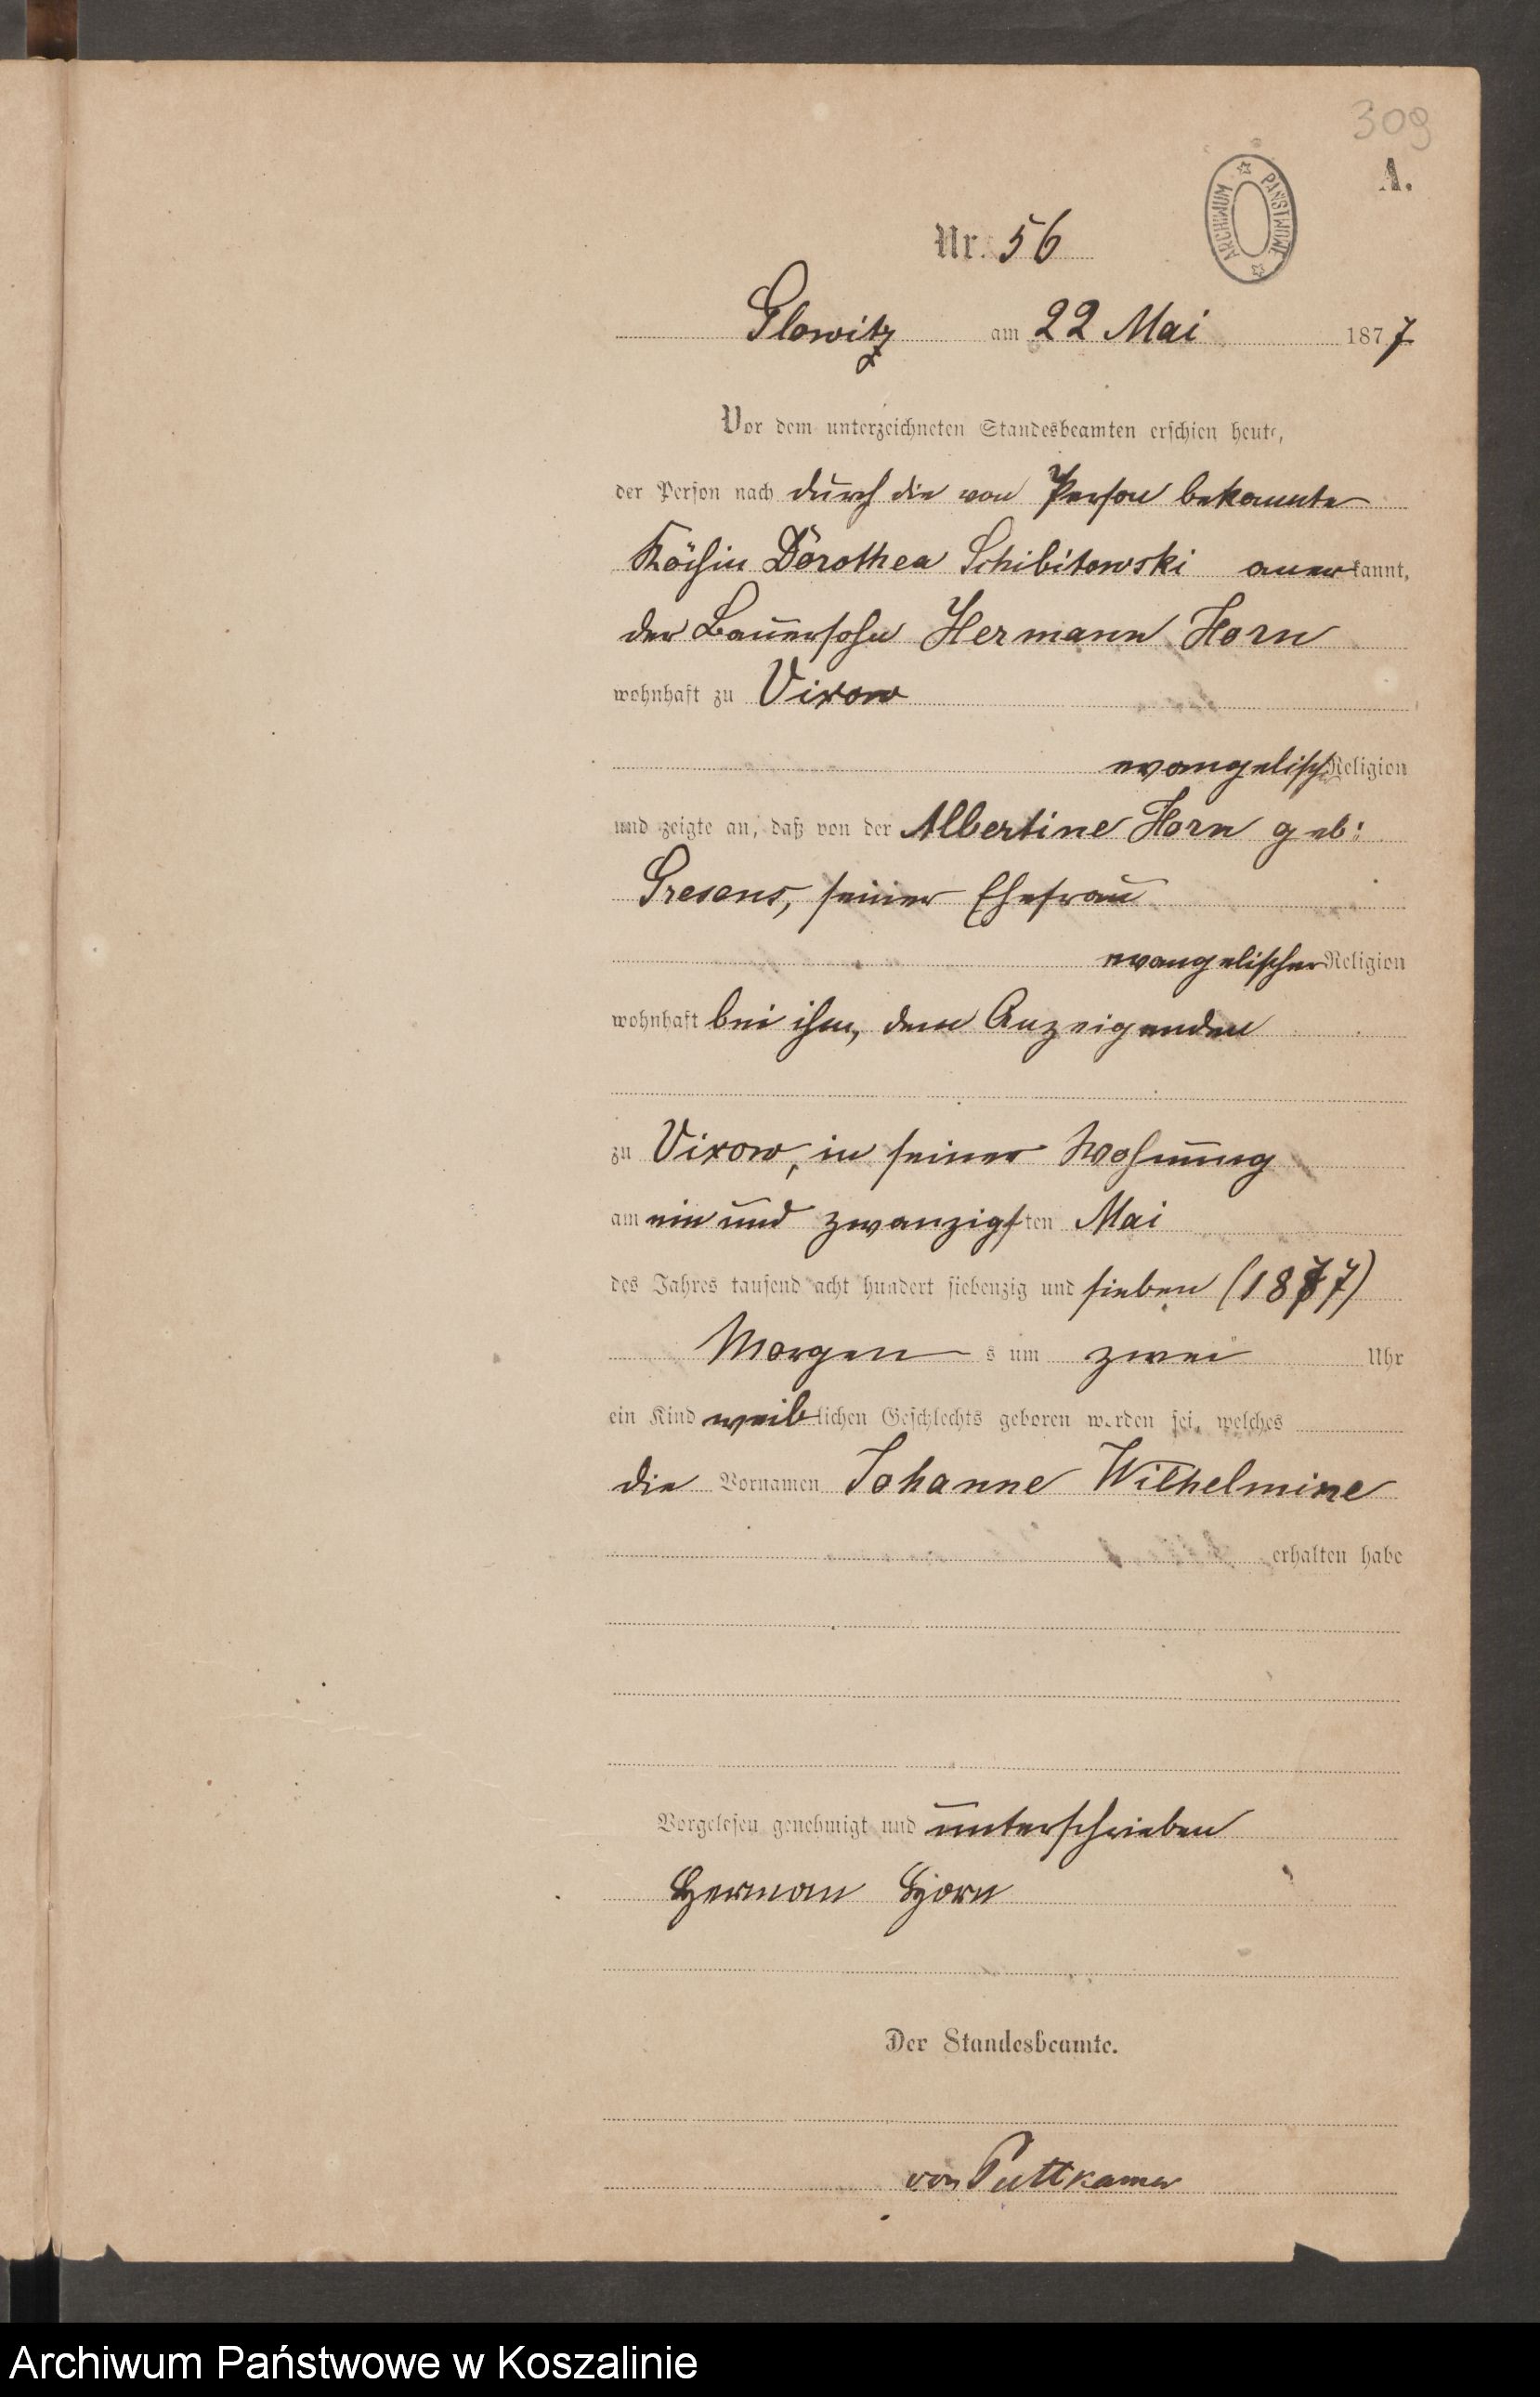 309
A.
ARCHIWUM PAŃSTWOWE
Nr. 56
Glowitz am 22 Mai 1877
Vor dem unterzeichneten Standesbeamten erschien heute,
der Person nach durch die von Person bekannte
Köchin Dorothea Schibitowski anerkannt,
der Bauersohn Hermann Horn
wohnhaft zu Vixow
evangelisch Religion
und zeigte an, daß von der Albertine Horn geb:
Gresens, seiner Ehefrau
evangelischer Religion
wohnhaft bei ihm, dem Anzeigenden
zu Vixow, in seiner Wohnung
am ein und zwanzigsten Mai
des Jahres tausend acht hundert siebenzig und sieben (1877)
Morgens um zwei Uhr
ein Kind weiblichen Geschlechts geboren worden sei, welches
die Vornamen Johanne Wilhelmine
erhalten habe
Vorgelesen genehmigt und unterschrieben
Herman Horn
Der Standesbeamte.
von Puttkamer
Archiwum Państwowe w Koszalinie